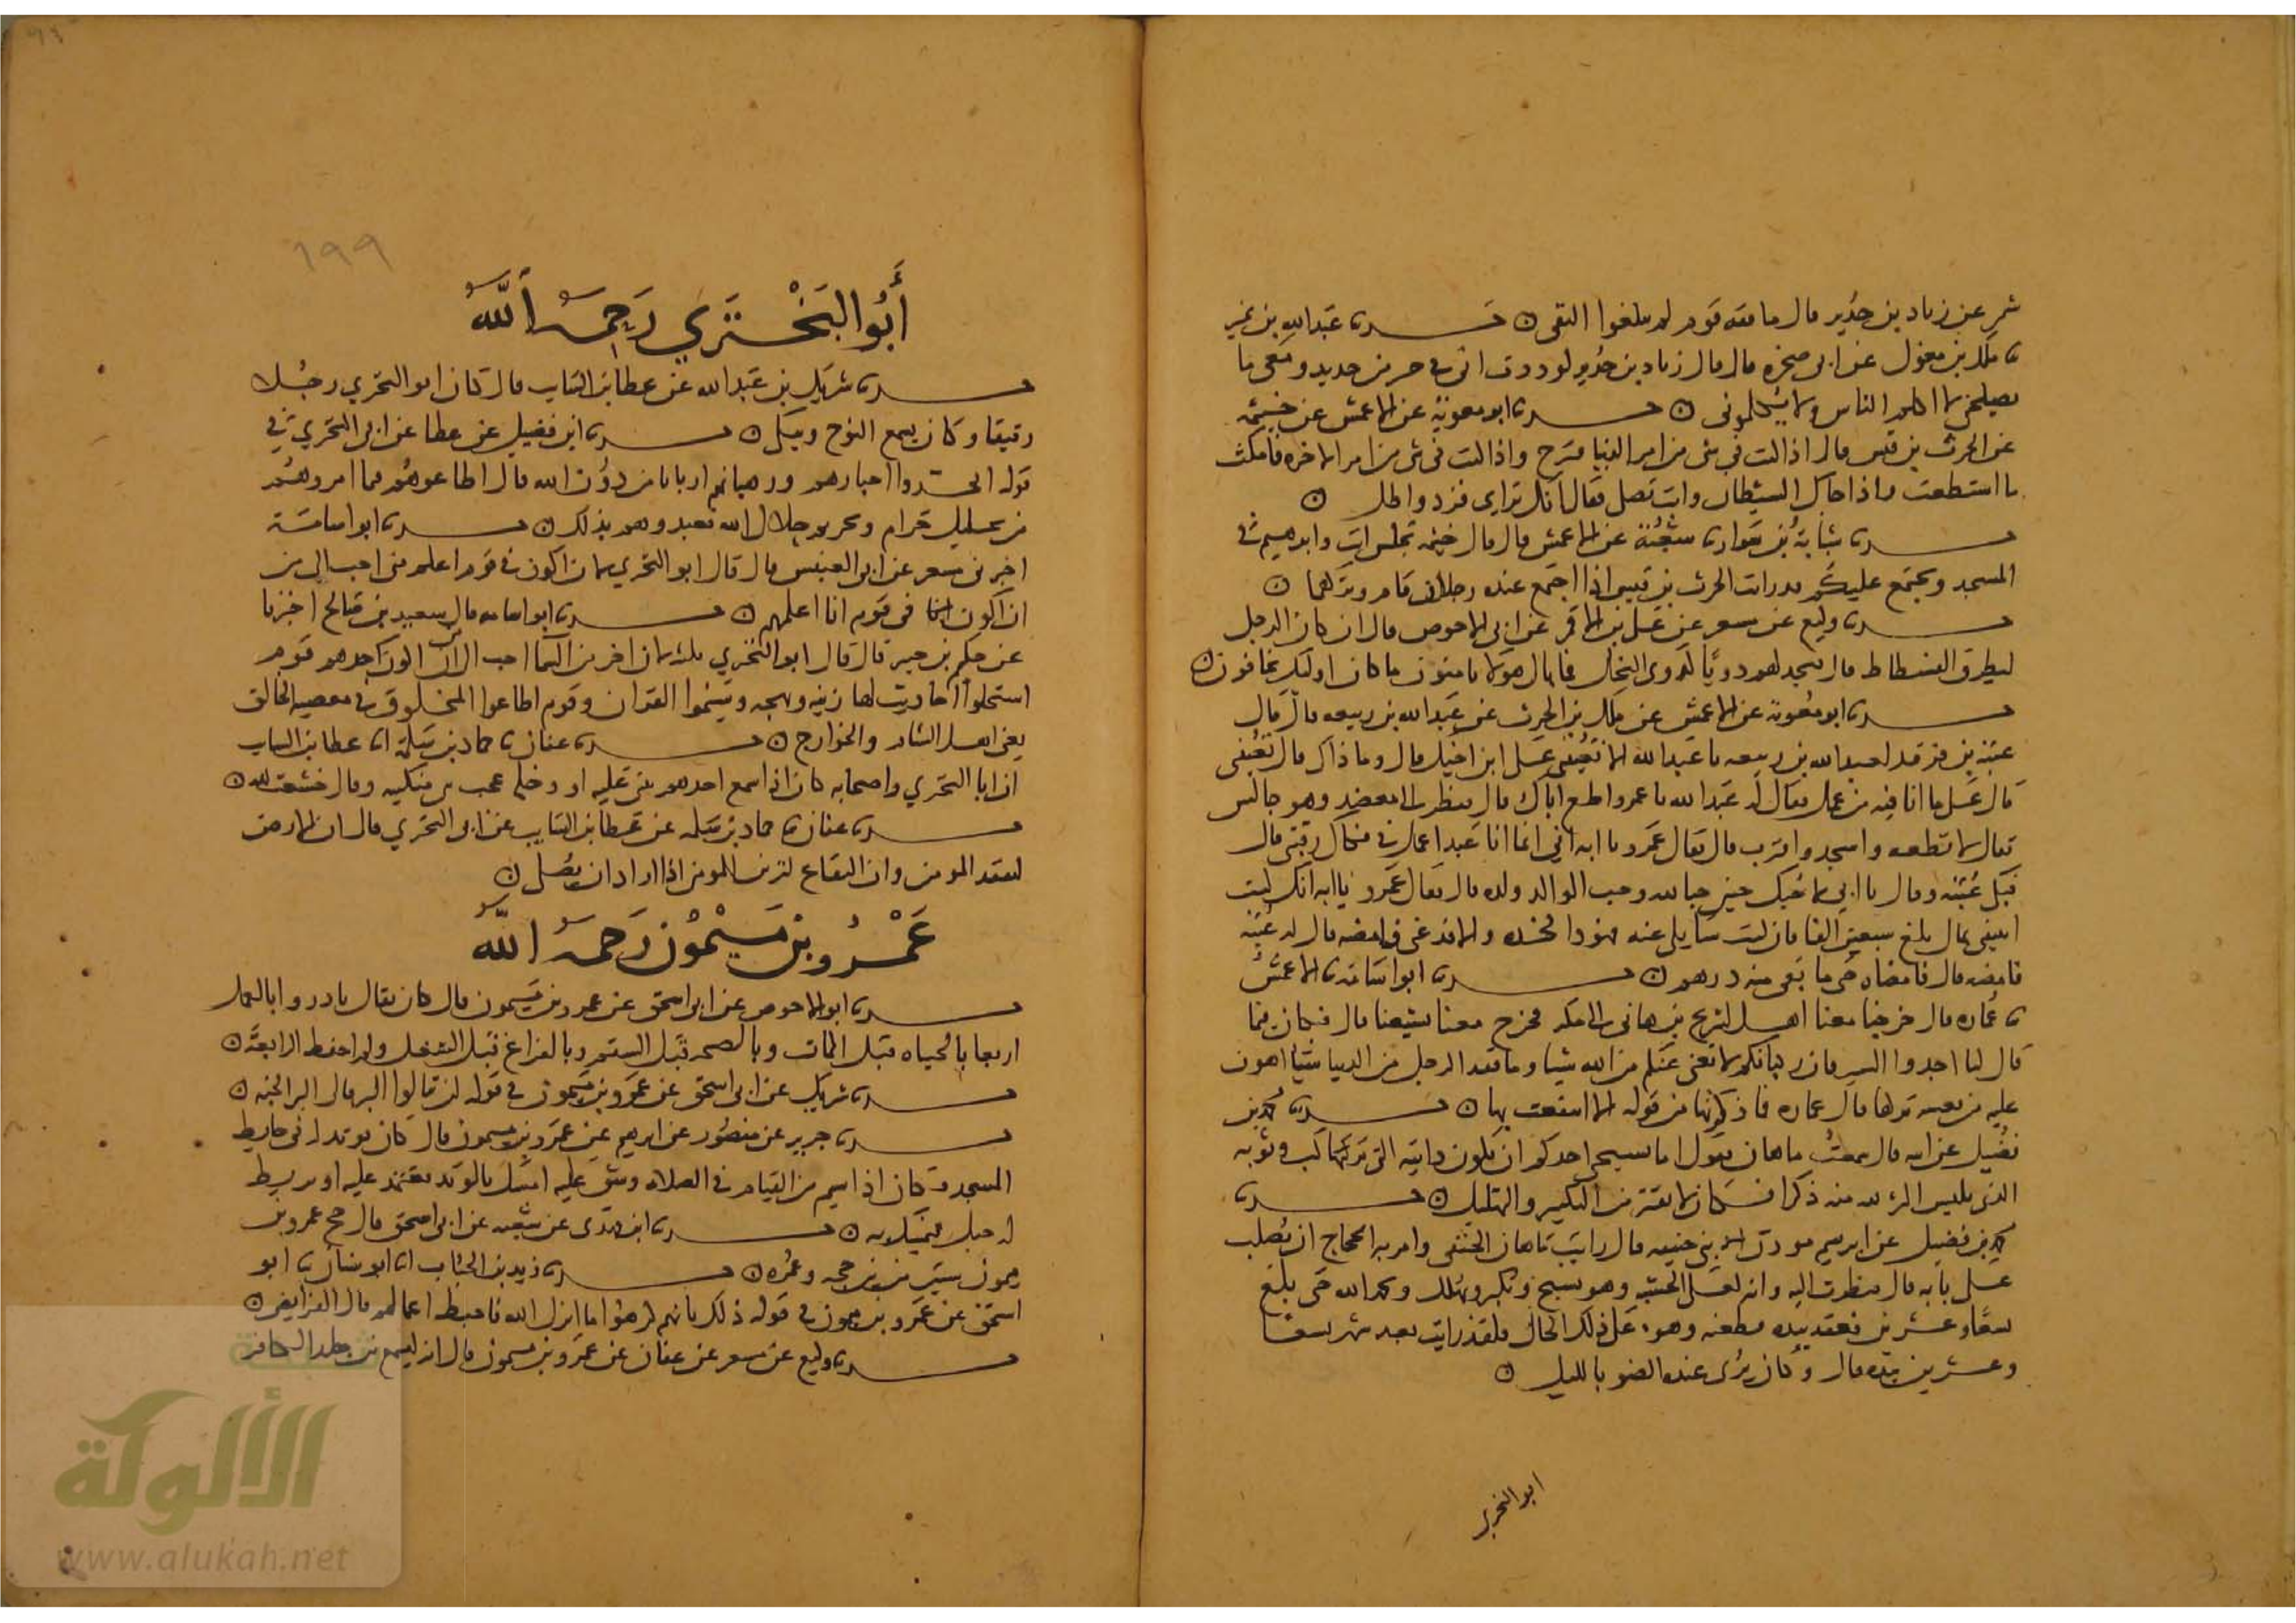 شر عن زياد بن حدير قال ما فقه قوم لم يبلغوا التقى ٥ حدثنا عبد الله بن نمير
نا ملك بن مغول عن ابي صخره قال قال زياد بن حدير لوددت اني في حيز من حديد ومعي ما
يصلحني لا اكلم الناس ولا يكلموني ٥ حدثنا ابو معوية عن الاعمش عن خيثمة
عن الحرث بن قيس قال اذا كنت في شي من امر الدنيا فترح واذا كنت في شي من امر الاخره فامكث
ما استطعت واذا جاك الشيطان وانت تصلي فقال انك ترائي فزد واطل ٥
حدثنا شبابة بن سوار نا شعبة عن الاعمش قال قال خيثمة تجلس انت وابرهيم في
المسجد ويجتمع عليكم قد رايت الحرث بن قيس اذا اجتمع عنده رجلان قام وتركهما ٥
حدثنا وكيع عن مسعر عن علي بن الاقمر عن ابي الاحوص قال ان كان الرجل
ليطرق الفسطاط قال فيجد لهم دويا كدوي النحل فما بال هولا يامنون ما كان اوليك يخافون ٥
حدثنا ابو معوية عن الاعمش عن ملك بن الحرث عن عبد الله بن ربيعه قال قال
عتبة بن فرقد لعبد الله بن ربيعه يا عبد الله الا تعينني على ابن اخيك قال وما ذاك قال تعينني
قال على ما انا فيه من عمل فقال له عبد الله يا عمرو اطع اباك قال فنظر الى معضد وهو جالس
فقال لا تطعه واسجد واقترب قال فقال عمرو يا ابه اني انما انا عبد اعمل في فكاك رقبتي قال
فبكى عتبة وقال يا ابني لاحبك حبين حبا لله وحب الوالد ولده قال فقال عمرو يا ابه انك كنت
اتيتني بمال بلغ سبعين الفا فان كنت سايلي عنه فهوذا فخذه والا فدعني فامضه قال له عتبة
فامضه قال فامضاه حتى ما بقي منه درهم ٥ حدثنا ابو اسامة نا الاعمش
نا عماره قال خرجنا معنا اهل لشريح بن هاني الى مكه فخرج معنا يشيعنا قال فكان فيما
قال لنا اجدوا السير فان ركبانكم لا تغني عنكم من الله شيا وما فقد الرجل من الدنيا شيا اهون
عليه من نعسه تركها قال عماره فما ذكرتها من قوله الا انتفعت بها ٥ حدثنا محمد بن
فضيل عن ابيه قال سمعت ماهان يقول اما يستحي احدكم ان تكون دابته التي تركب وثوبه
الذي يلبس اكثر لله منه ذكرا فكان لا يفتر من التكبير والتهليل ٥ حدثنا
محمد بن فضيل عن ابرهيم موذن بني حنيفه قال رايت ماهان الحنفي وامر به الحجاج ان يصلب
على بابه قال فنظرت اليه وانه لعلى الخشبه وهو يسبح ويكبر ويهلل ويحمد الله حتى بلغ
تسعا وعشرين فعقد بيده فطعنه وهو على ذلك الحال فلقد رايته بعد شهر تسعا
وعشرين بيده قال وكان يرى عنده الضو بالليل ٥
ابو البختري
١٩٩
أبو البختري رحمه الله
حدثنا شريك بن عبد الله عن عطا بن السايب قال كان ابو البختري رجلا
رقيقا وكان يسمع النوح ويبكي ٥ حدثنا ابن فضيل عن عطا عن ابي البختري في
قوله اتخذوا احبارهم ورهبانهم اربابا من دون الله قال اطاعوهم فيما امروهم
من تحليل حرام وتحريم حلال الله فعبدوهم بذلك ٥ حدثنا ابو اسامة
اخبرني مسعر عن ابي العنبس قال قال ابو البختري لان اكون في قوم اعلم مني احب الي من
ان اكون في قوم انا اعلمهم ٥ حدثنا ابو اسامه قال سعيد بن صالح اخبرنا
عن حكيم بن جبير قال قال ابو البختري ثلاث لان اخر من السما احب الي من ان اكون احدهم قوم
استحلوا احاديث لها زينه وبهجه وسيموا القران وقوم اطاعوا المخلوق في معصيه الخالق
يعني اهل الشام والخوارج ٥ حدثنا عفان نا حماد بن سلمة انا عطا بن السايب
ان ابا البختري واصحابه كان اذا سمع احدهم يثنى عليه او دخله عجب ثنى منكبيه وقال خشعت لله ٥
حدثنا عفان نا حماد بن سلمه عن عطا بن السايب عن ابي البختري قال ان الارض
لتفقد المومن وان البقاع لتزين للمومن اذا اراد ان يصلي ٥
عمرو بن ميمون رحمه الله
حدثنا ابو الاحوص عن ابي اسحق عن عمرو بن ميمون قال كان يقال بادروا بالعمل
اربعا بالحياه قبل الممات وبالصحه قبل السقم وبالفراغ قبل الشغل ولم احفظ الرابعة ٥
حدثنا شريك عن ابي اسحق عن عمرو بن ميمون في قوله لن تنالوا البر قال البر الجنه ٥
حدثنا جرير عن منصور عن ابرهيم عن عمرو بن ميمون قال كان يوتد له في حايط
المسجد وكان اذا سيم من القيام في الصلاه وشق عليه امسك بالوتد يعتمد عليه او يربط
له حبل فيتمسك به ٥ حدثنا ابن مهدي عن شعبه عن ابي اسحق قال حج عمرو بن
ميمون ستين من بين حجه وعمره ٥ حدثنا زيد بن الحباب انا ابو سنان نا ابو
اسحق عن عمرو بن ميمون في قوله ذلك بانهم كرهوا ما انزل الله فاحبط اعمالهم قال الفرايض ٥
حدثنا وكيع عن مسعر عن عفان عن عمرو بن ميمون قال انه ليسمع بين جلد الكافر
الألوكة
www.alukah.net